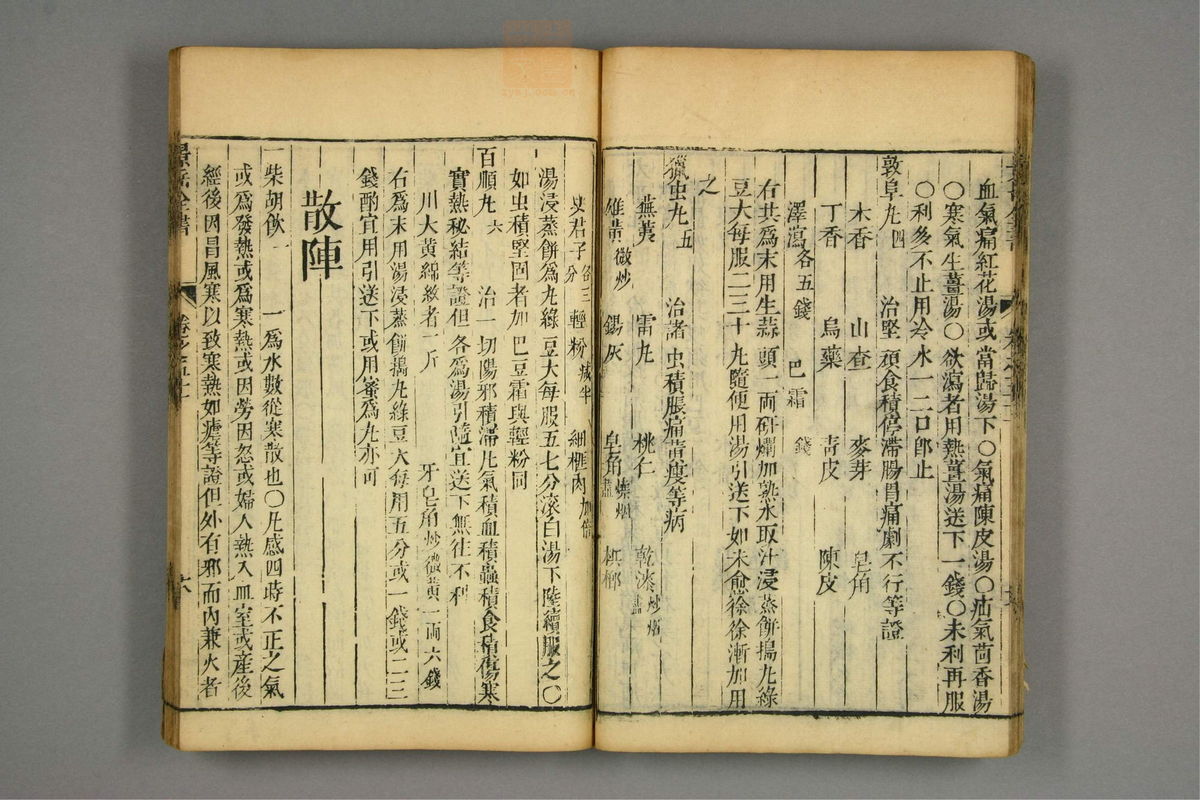 血氣痛紅花湯或當歸湯下〇氣痛陳皮湯〇疝氣茴香湯
〇寒氣生薑湯〇欲瀉者用熱薑湯送下一錢〇未利再服
〇利多不止用冷水一二口卽止
敦阜丸四 治堅頑食積停滯腸胃痛劇不行等證
木香 山查 麥芽 皂角
丁香 烏藥 青皮 陳皮
澤瀉各五錢 巴霜 錢
右共爲末用生蒜頭一兩研爛加熟水取汁浸蒸餅搗丸綠
豆大每服二三十丸隨便用湯引送下如未愈徐徐漸加用
之
獵虫丸五 治諸虫積脹痛黃瘦等病
蕪荑 雷丸 桃仁 乾漆炒烟盡
雄黃微炒 錫灰 皂角燒烟盡 檳榔
史君子各三分 輕粉減半 細榧肉加倍
湯浸蒸餅爲丸綠豆大每服五七分滚白湯下陸續服之〇
如虫積堅固者加巴豆霜與輕粉同
百順丸六 治一切陽邪積滯凡氣積血積蟲積食積傷寒
實熱秘結等證但各爲湯引隨宜送下無往不利
川大黃綿紋者一斤 牙皂角炒微黃一兩六錢
右爲末用湯浸蒸餅搗丸綠豆大每用五分或一錢或二三
錢酌宜用引送下或用蜜爲丸亦可
散陣
一柴胡飲一 一爲水數從寒散也〇凡感四時不正之氣
或爲發熱或爲寒熱或因勞因怒或婦人熱入血室或産後
經後因冒風寒以致寒熱如瘧等證但外有邪而內兼火者
景岳全書
卷之五十一
六